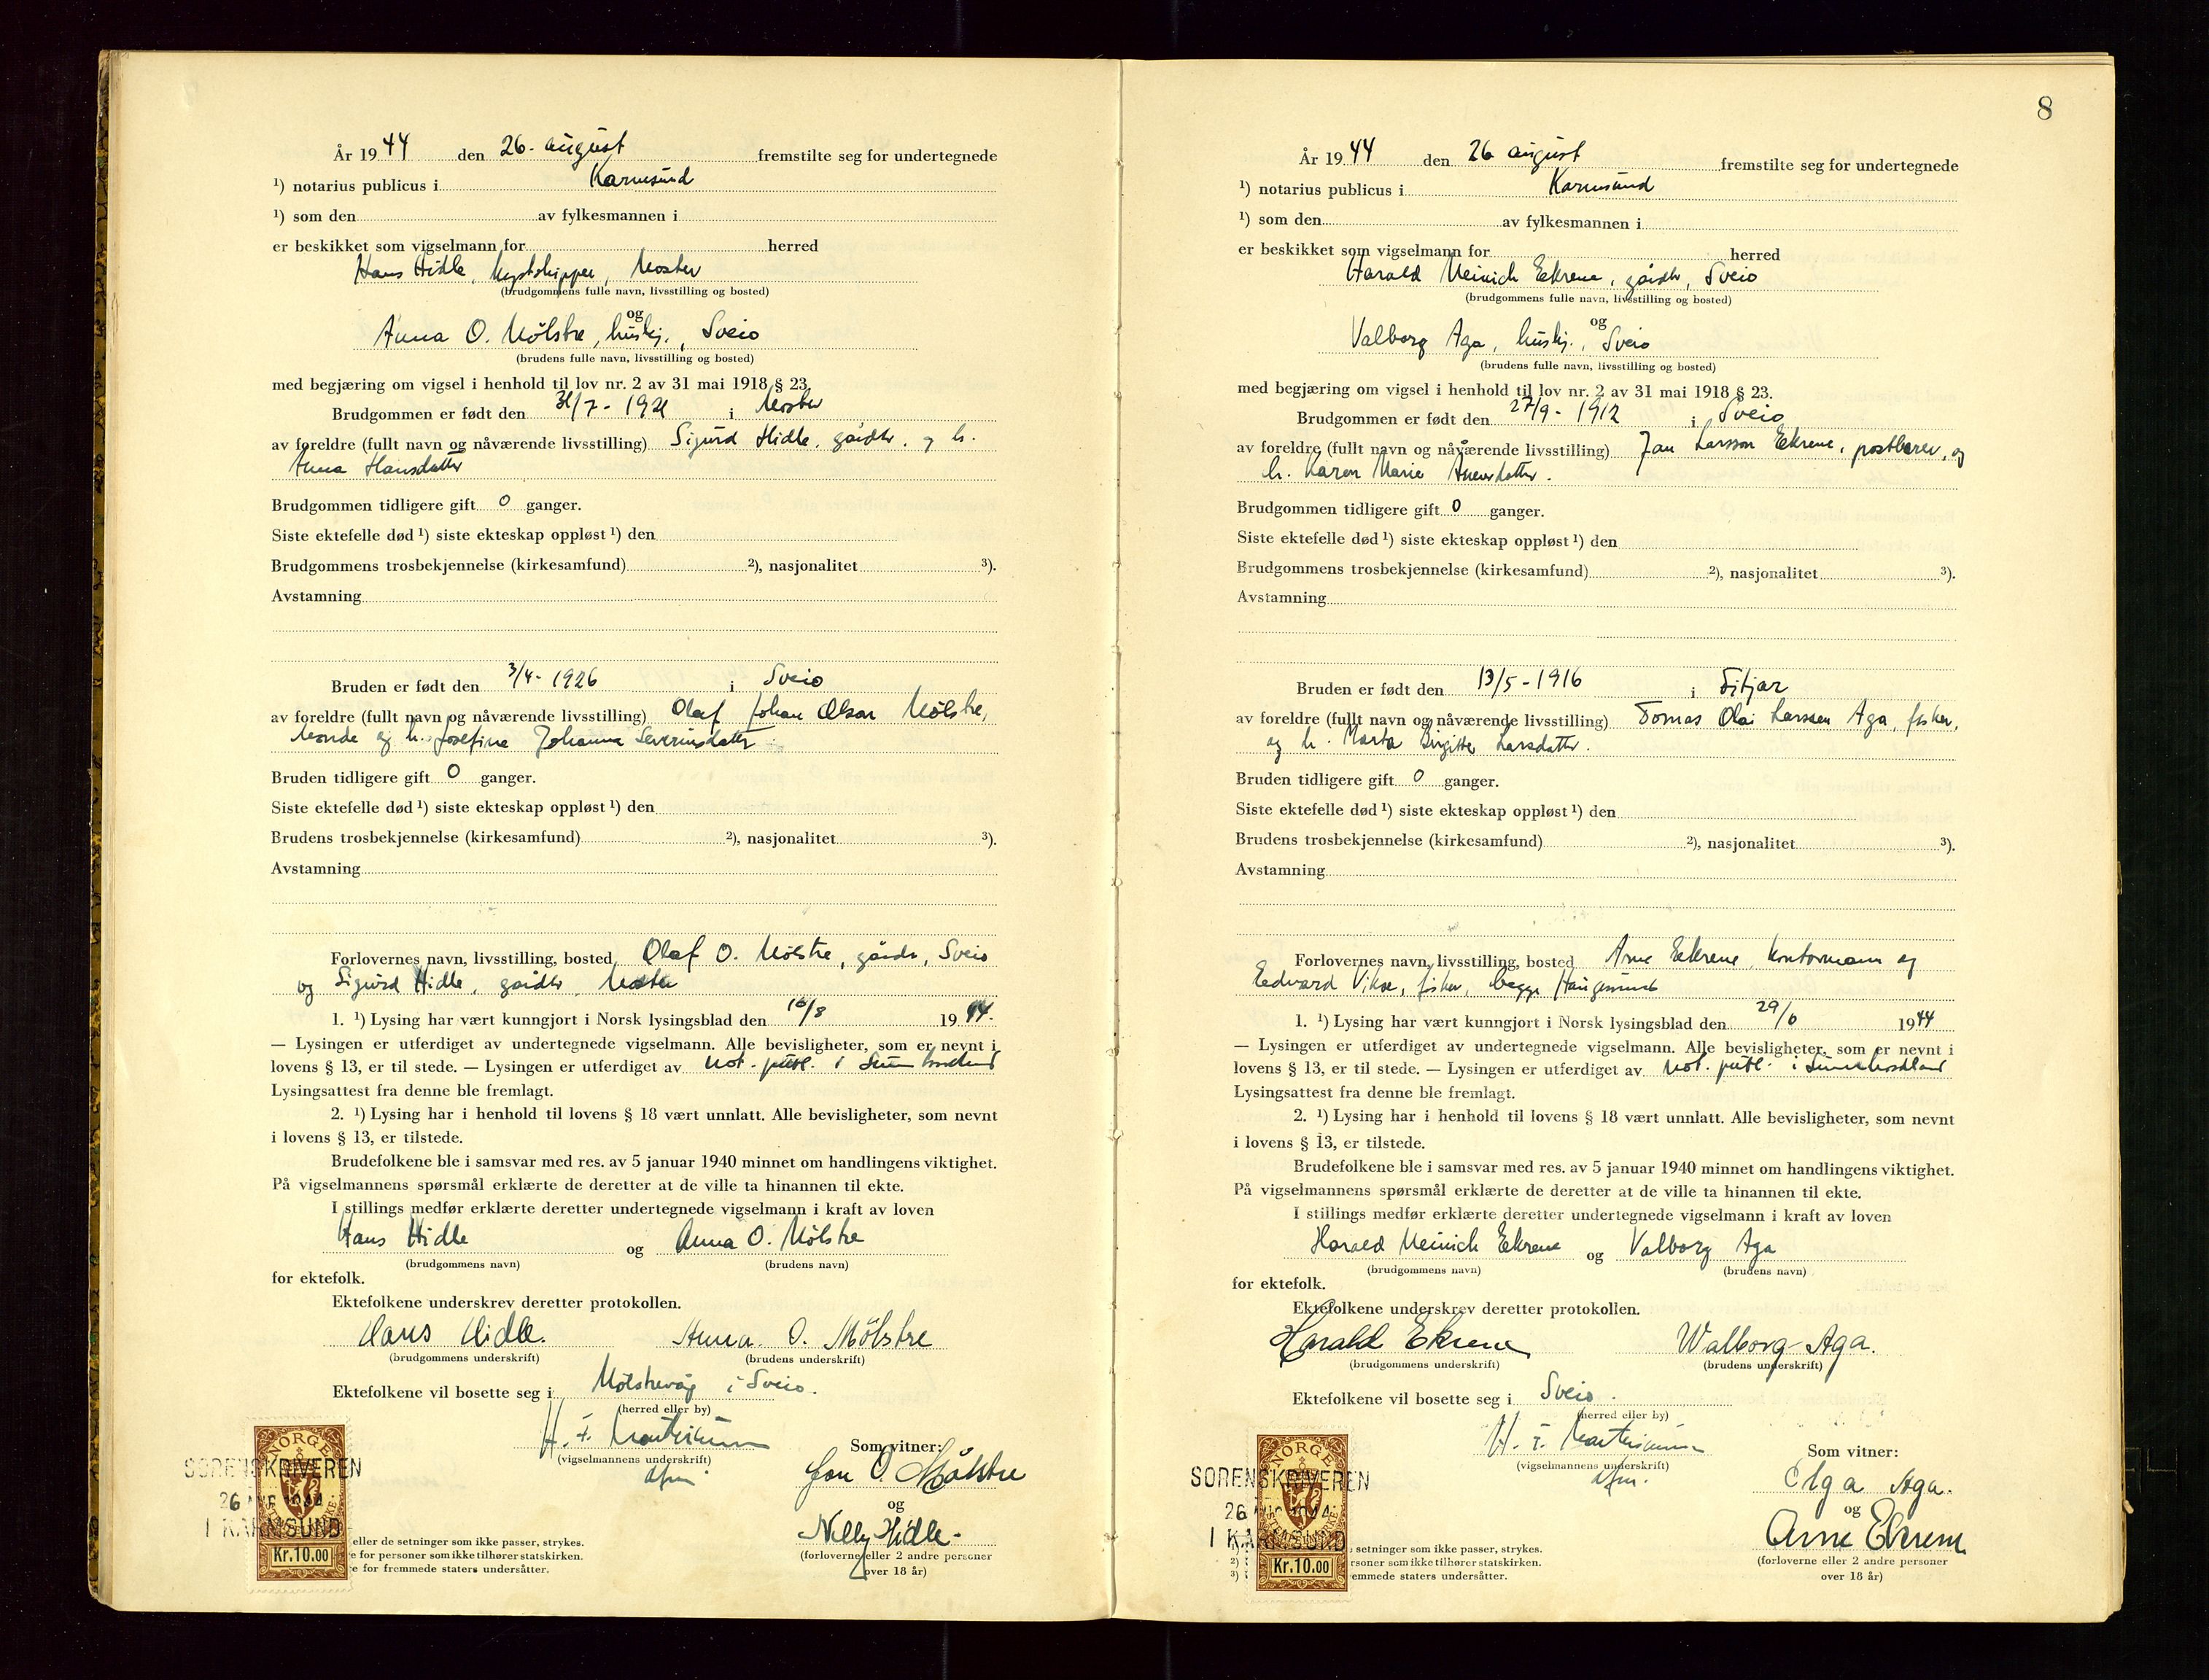 År 1944 den 26. august fremstilte seg for undertegnede
¹) notarius publicus i Karmsund
¹) som den av fylkesmannen i
er beskikket som vigselmann for herred
Hans Hidle, kystskipper, Moster
(brudgommens fulle navn, livsstilling og bosted)
og
Anna O. Mølstre, huslj., Sveio
(brudens fulle navn, livsstilling og bosted)
med begjæring om vigsel i henhold til lov nr. 2 av 31 mai 1918 § 23.
Brudgommen er født den 31/7 - 1921 i Moster
av foreldre (fullt navn og nåværende livsstilling) Sigurd Hidle, gårdbr. og h.
Anna Hansdatter
Brudgommen tidligere gift 0 ganger.
Siste ektefelle død ¹) siste ekteskap oppløst ¹) den
Brudgommens trosbekjennelse (kirkesamfund) ²), nasjonalitet ³).
Avstamning
Bruden er født den 3/4 - 1926 i Sveio
av foreldre (fullt navn og nåværende livsstilling) Olaf Johan Olsen Mølstre,
bonde og h. Josefine Johanna Severinsdatter
Bruden tidligere gift 0 ganger.
Siste ektefelle død ¹) siste ekteskap oppløst ¹) den
Brudens trosbekjennelse (kirkesamfund) ²), nasjonalitet ³).
Avstamning
Forlovernes navn, livsstilling, bosted Olaf O. Mølstre, gårdbr, Sveio
og Sigurd Hidle, gårdbr, Moster
1. ¹) Lysing har vært kunngjort i Norsk lysingsblad den 16/8 1944.
— Lysingen er utferdiget av undertegnede vigselmann. Alle bevisligheter, som er nevnt i
lovens § 13, er til stede. — Lysingen er utferdiget av not. publ. i Sunnhordland
Lysingsattest fra denne ble fremlagt.
2. ¹) Lysing har i henhold til lovens § 18 vært unnlatt. Alle bevisligheter, som nevnt
i lovens § 13, er tilstede.
Brudefolkene ble i samsvar med res. av 5 januar 1940 minnet om handlingens viktighet.
På vigselmannens spørsmål erklærte de deretter at de ville ta hinannen til ekte.
I stillings medfør erklærte deretter undertegnede vigselmann i kraft av loven
Hans Hidle og Anna O. Mølstre
(brudgommens navn) (brudens navn)
for ektefolk.
Ektefolkene underskrev deretter protokollen.
Hans Hidle. Anna O. Mølstre
(brudgommens underskrift) (brudens underskrift)
Ektefolkene vil bosette seg i Mølstrevåg i Sveio.
(herred eller by)
(vigselmannens underskrift)
Som vitner:
Jon O. Mølstre
og
Nelly Hidle
(forloverne eller 2 andre personer
over 18 år)
NORGE
SORENSKRIVEREN
26 AUG 1944
I KARMSUND
Kr. 10.00
eller de setninger som ikke passer, strykes.
e for personer som ikke tilhører statskirken.
e for fremmede staters undersåtter.
8
År 1944 den 26 august fremstilte seg for undertegnede
¹) notarius publicus i Karmsund
¹) som den av fylkesmannen i
er beskikket som vigselmann for herred
Harald Meinich Eekrene, gårdbr, Sveio
(brudgommens fulle navn, livsstilling og bosted)
og
Valborg Aga, huslj., Sveio
(brudens fulle navn, livsstilling og bosted)
med begjæring om vigsel i henhold til lov nr. 2 av 31 mai 1918 § 23.
Brudgommen er født den 27/9 - 1912 i Sveio
av foreldre (fullt navn og nåværende livsstilling) Jan Larsson Eekrene, postberer, og
h. Karen Marie
Brudgommen tidligere gift 0 ganger.
Siste ektefelle død ¹) siste ekteskap oppløst ¹) den
Brudgommens trosbekjennelse (kirkesamfund) ²), nasjonalitet ³).
Avstamning
Bruden er født den 13/5 - 1916 i Fitjar
av foreldre (fullt navn og nåværende livsstilling) Tomas Olai Larssen Aga, fisker,
og h. Marta Birgitte Larsdatter.
Bruden tidligere gift 0 ganger.
Siste ektefelle død ¹) siste ekteskap oppløst ¹) den
Brudens trosbekjennelse (kirkesamfund) ²), nasjonalitet ³).
Avstamning
Forlovernes navn, livsstilling, bosted Arne Eekrene, kontormann og
Edvard Vikse, fisker, begge Haugesund
1. ¹) Lysing har vært kunngjort i Norsk lysingsblad den 29/6 1944
— Lysingen er utferdiget av undertegnede vigselmann. Alle bevisligheter, som er nevnt i
lovens § 13, er til stede. — Lysingen er utferdiget av not. publ. i Sunnhordland
Lysingsattest fra denne ble fremlagt.
2. ¹) Lysing har i henhold til lovens § 18 vært unnlatt. Alle bevisligheter, som nevnt
i lovens § 13, er tilstede.
Brudefolkene ble i samsvar med res. av 5 januar 1940 minnet om handlingens viktighet.
På vigselmannens spørsmål erklærte de deretter at de ville ta hinannen til ekte.
I stillings medfør erklærte deretter undertegnede vigselmann i kraft av loven
Harald Meinich Eekrene og Valborg Aga
(brudgommens navn) (brudens navn)
for ektefolk.
Ektefolkene underskrev deretter protokollen.
Harald Ekrene Walborg Aga.
(brudgommens underskrift) (brudens underskrift)
Ektefolkene vil bosette seg i Sveio.
(herred eller by)
(vigselmannens underskrift)
Som vitner:
Olga Aga.
og
Arne Ekrene
(forloverne eller 2 andre personer
over 18 år)
NORGE
SORENSKRIVEREN
26 AUG 1944
I KARMSUND
Kr. 10.00
setninger som ikke passer, strykes.
²) rsoner som ikke tilhører statskirken.
³) emmede staters undersåtter.